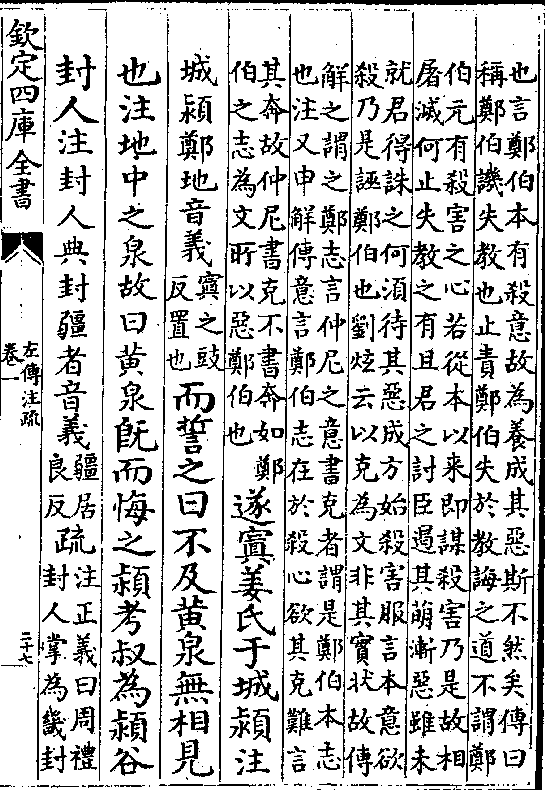 也言鄭伯本有殺意故為養成其惡斯不然矣傳曰
稱鄭伯譏失教也止責鄭伯失於教誨之道不謂鄭
伯元有殺害之心若從本以来即謀殺害乃是故相
屠滅何止失教之有且君之討臣遏其萌漸惡雖未
就君得誅之何須待其惡成方始殺害服言本意欲
殺乃是誣鄭伯也劉炫云以克為文非其實狀故傳
解之謂之鄭志言仲尼之意書克者謂是鄭伯本志
也注又申解傳意言鄭伯志在於殺心欲其克難言
其奔故仲尼書克不書奔如鄭
伯之志為文所以惡鄭伯也
遂寘姜氏于城潁注
城潁鄭地音義
寘之豉
反置也
而誓之曰不及黄泉無相見
也注地中之泉故曰黄泉既而悔之潁考叔為潁谷
封人注封人典封疆者音義
疆居
良反
疏
注正義曰周禮
封人掌為畿封
欽定四庫全書
左傳注疏
卷一
二十七